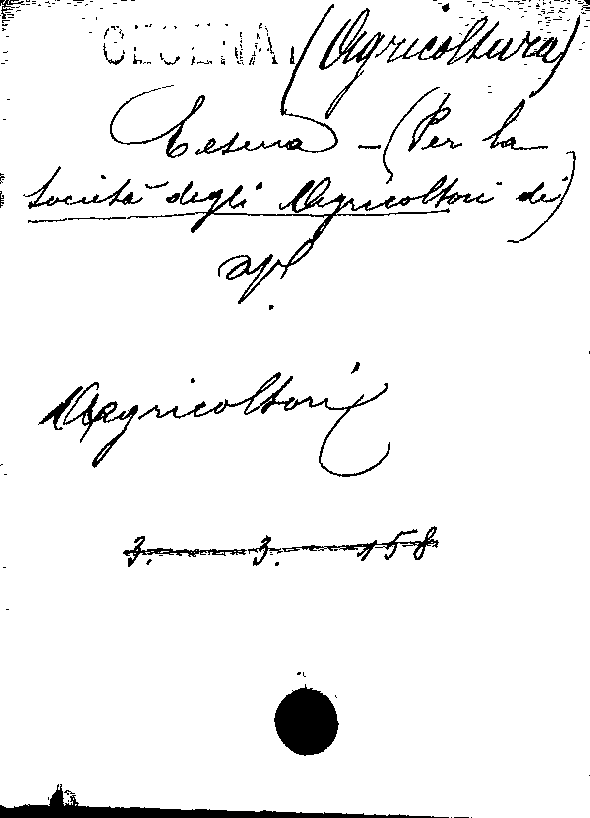 CESENA. (Agricoltura)
Cesena - (Per la
Società degli Agricoltori di)
apl.
Agricoltori
3. 3. 158